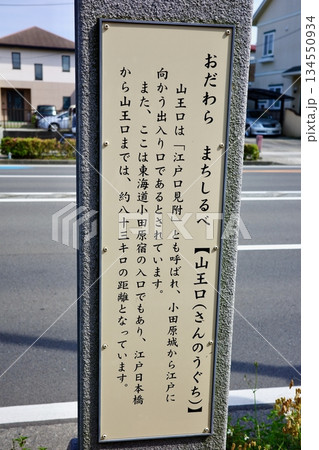 おだわら　まちしるべ　【山王口（さんのうぐち）】
山王口は「江戸口見附」とも呼ばれ、小田原城から江戸に
向かう出入り口であるとされています。
また、ここは東海道小田原宿の入口でもあり、江戸日本橋
から山王口までは、約八十三キロの距離となっています。
PIXTA
134550934